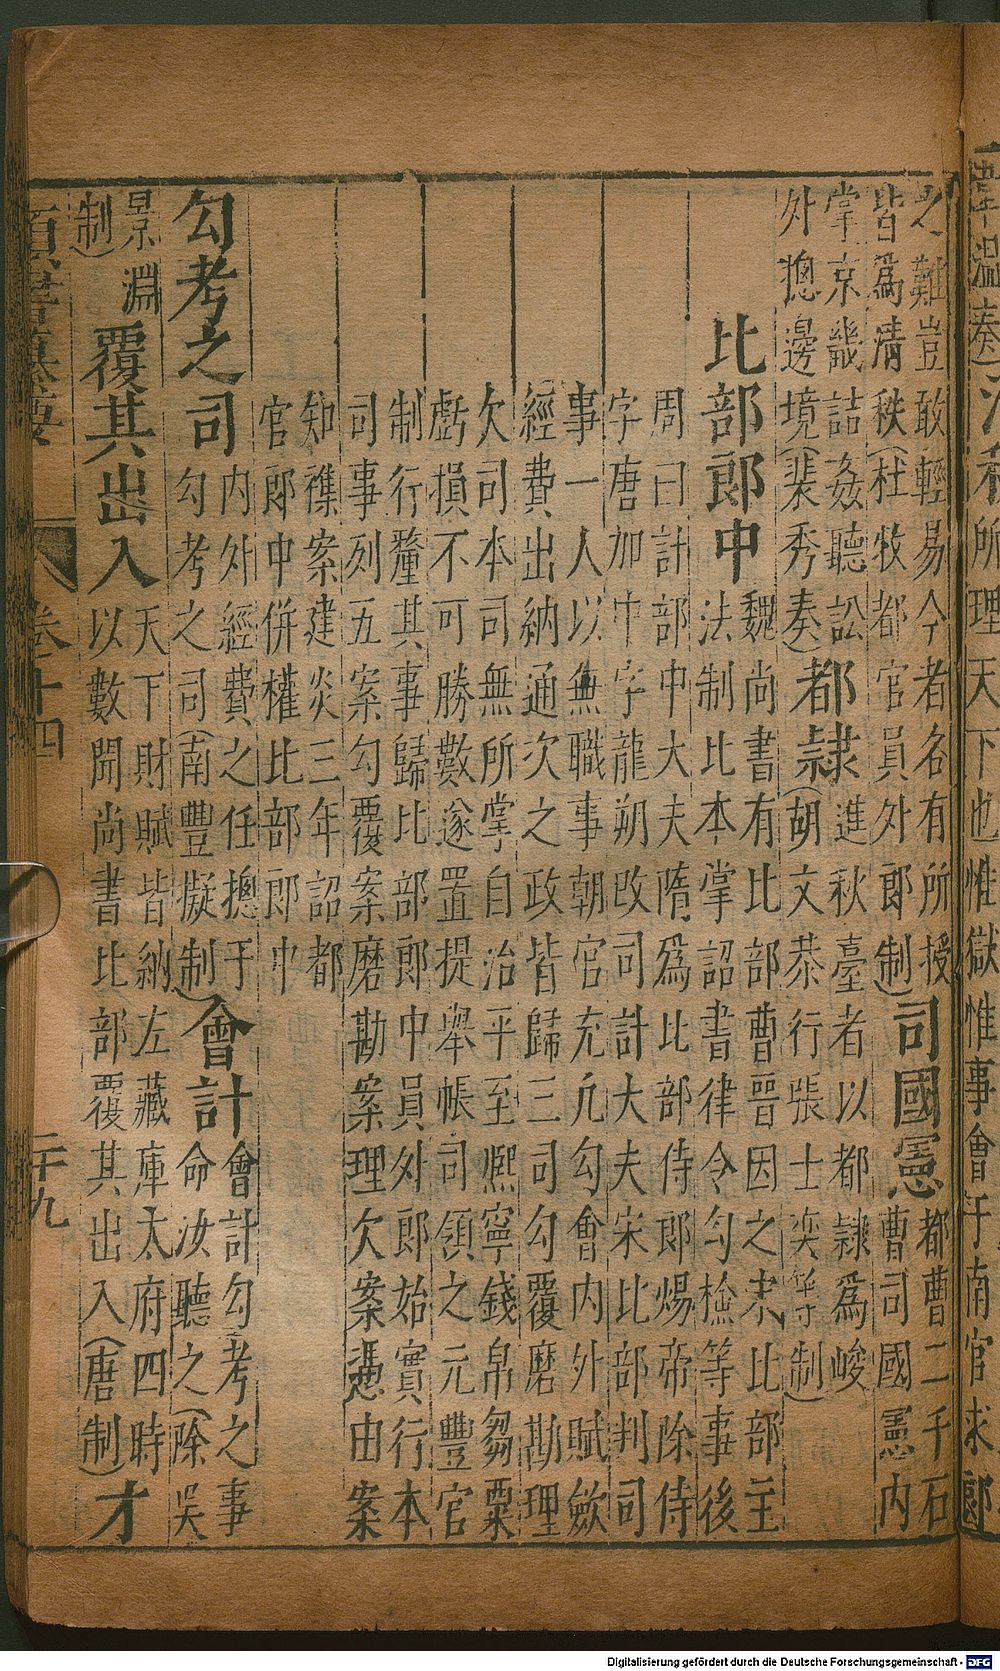 所理天下也惟獄惟事會于南官求郎
之難豈敢輕易今者名有所授
皆爲清秩(杜牧都官員外郎制)
司國憲
都曹二千石
曹司國憲內
掌京畿詰姦聽訟
外揔邊境(裴秀奏)
都隷
進秋臺者以都隷爲峻
(胡文恭行張士奕等制)
比部郎中
魏尚書有比部曹晉因之宋比部主
法制比本掌詔書律令勾檢等事後
周曰計部中大夫隋爲比部侍郎煬帝除侍
字唐加中字龍朔改司計大夫宋比部判司
事一人以無職事朝官充凢勾會內外賦斂
經費出納通次之政皆歸三司勾覆磨勘理
欠司本司無所掌自治平至熈寧錢帛芻粟
虧損不可勝數遂置提舉帳司領之元豐官
制行釐其事歸比部郎中員外郎始實行本
司事列五案勾覆案磨勘案理欠案憑由案
知襍案建炎三年詔都
官郎中併權比部郎中
勾考之司
內外經費之任揔于
勾考之司(南豐擬制)
會計
會計勾考之事
命汝聽之(除吳
景淵
制)
覆其出入
天下財賦皆納左藏庫太府四時
以數聞尚書比部覆其出入(唐制)
才
類書纂要 卷十四 二十九
Digitalisierung gefördert durch die Deutsche Forschungsgemeinschaft - DFG